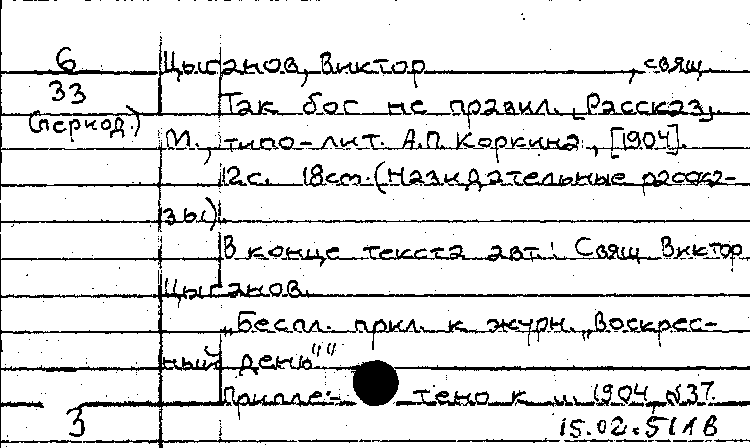 6
Цыганов, Виктор , свящ
33
Так бог не правил. [Рассказ].
(период.)
М., типо-лит. А.П. Коркина, [1904].
12с. 18см. (Назидательные расска-
зы).
В конце текста авт.: Свящ Виктор
Цыганов.
„Беспл. прил. к журн. „Воскрес-
ный день""
Припле- тено к 1904, №37.
3
15.02.51